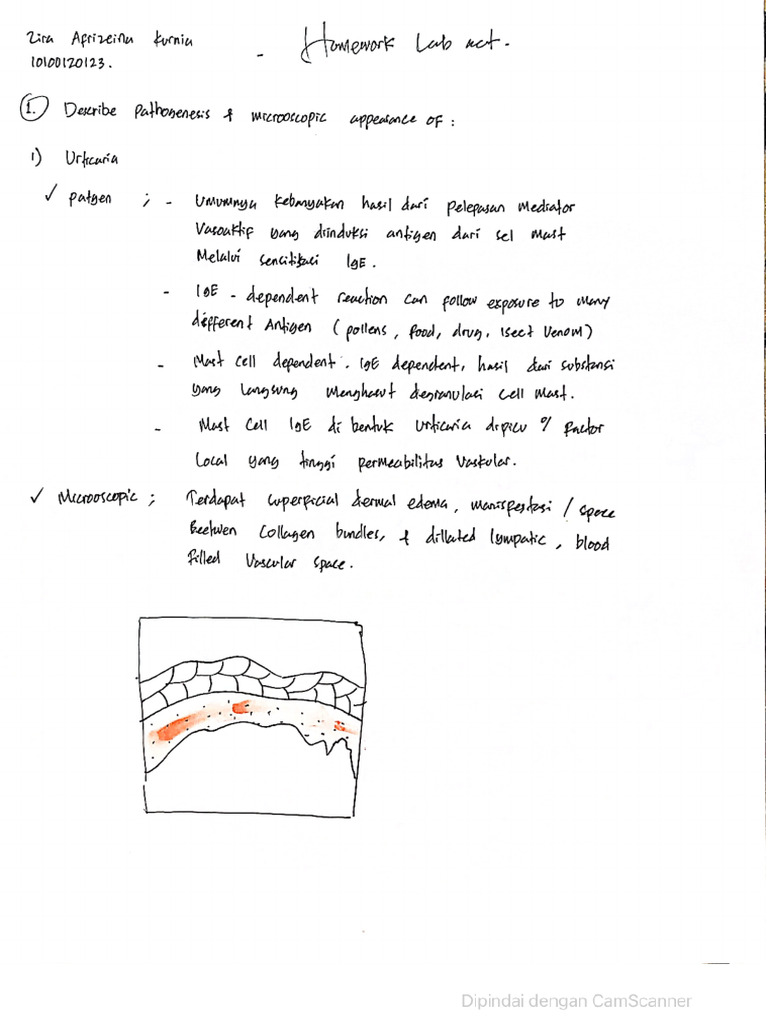 Zira Afrizeina Kurnia
10100120123.
- Homework Lab act.
1. Describe Pathogenesis & microoscopic appearance of :
1) Urticaria
✓ patgen ; - Umumnya kebanyakan hasil dari pelepasan Mediator
Vasoaktif yang diinduksi antigen dari sel Mast
Melalui sencitikasi IgE.
- IgE - dependent reaction can follow exposure to Many
different Antigen ( pollens, food, drug, isect Venom)
- Mast cell dependent. IgE dependent, hasil dari substansi
yang langsung menghasut degranulaci cell Mast.
- Mast cell IgE di bentuk urticaria dipicu % factor
Local yang tinggi permeabilitas Vaskular.
✓ Microoscopic ; Terdapat cuperficial dermal edema, manispestasi / space
Beetwen collagen bundles, & dillated lympatic, blood
filled Vascular space.
Dipindai dengan CamScanner